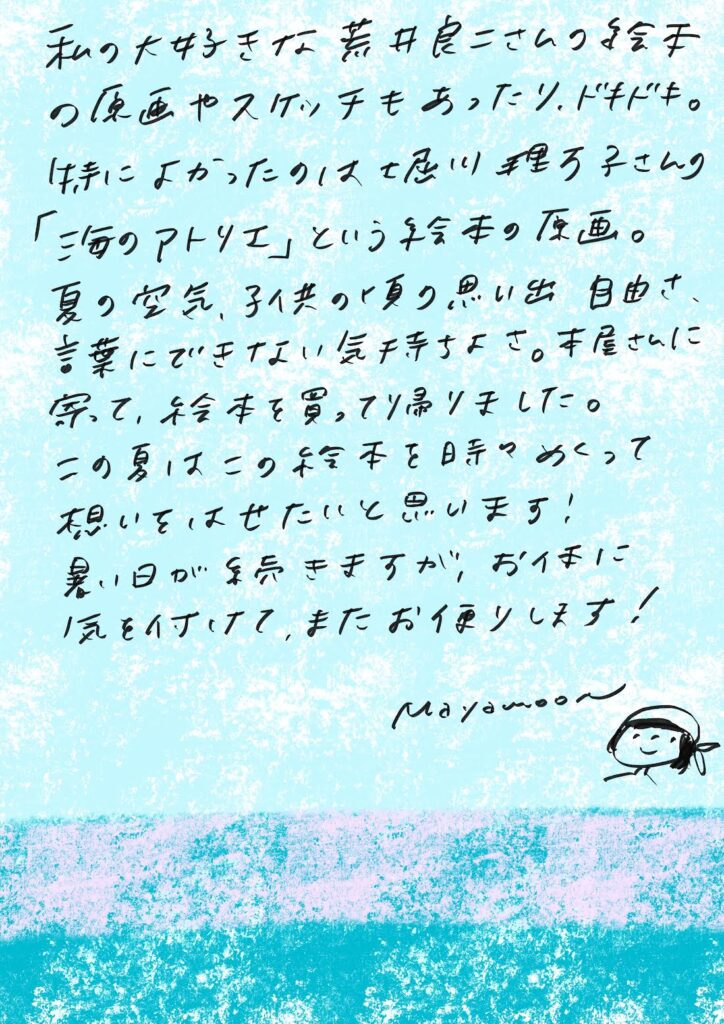 私の大好きな荒井良二さんの絵本
の原画やスケッチもあったり、ドキドキ。
特によかったのは堀川理万子さんの
「海のアトリエ」という絵本の原画。
夏の空気、子供の頃の思い出 自由さ、
言葉にできない気持ちよさ。本屋さんに
寄って、絵本を買って帰りました。
この夏はこの絵本を時々めくって
想いをはせたいと思います!
暑い日が続きますが、お体に
気を付けて、またお便りします!
Mayamoon